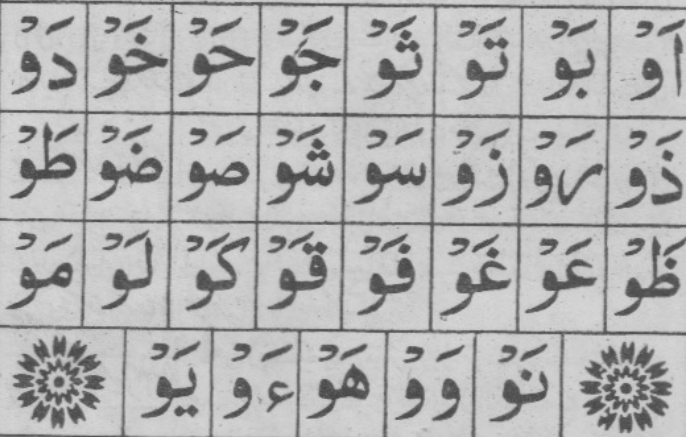 اَوْ بَوْ تَوْ ثَوْ جَوْ حَوْ خَوْ دَوْ
ذَوْ رَوْ زَوْ سَوْ شَوْ صَوْ ضَوْ طَوْ
ظَوْ عَوْ غَوْ فَوْ قَوْ كَوْ لَوْ مَوْ
نَوْ وَوْ هَوْ ءَوْ يَوْ